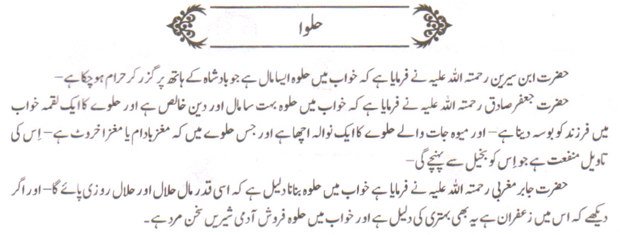 حلوا
حضرت ابن سیرین رحمتہ اللہ علیہ نے فرمایا ہے کہ خواب میں حلوہ ایسا مال ہے جو بادشاہ کے ہاتھ پر گزر کر حرام ہو چکا ہے–
حضرت جعفر صادق رحمتہ اللہ علیہ نے فرمایا ہے کہ خواب میں حلوہ بہت سا مال اور دین خالص ہے اور حلوے کا ایک لقمہ خواب
میں فرزند کو بوسہ دینا ہے– اور میوہ جات والے حلوے کا ایک نوالہ اچھا ہے اور جس حلوے میں کہ مغز بادام یا مغز اخروٹ ہے– اس کی
تاویل منفعت ہے جو اس کو بخیل سے پہنچے گی–
حضرت جابر مغربی رحمتہ اللہ علیہ نے فرمایا ہے خواب میں حلوہ بنانا دلیل ہے کہ اسی قدر مال حلال اور حلال روزی پائے گا– اور اگر
دیکھے کہ اس میں زعفران ہے یہ بھی بہتری کی دلیل ہے اور خواب میں حلوہ فروش آدمی شیریں سخن مرد ہے۔